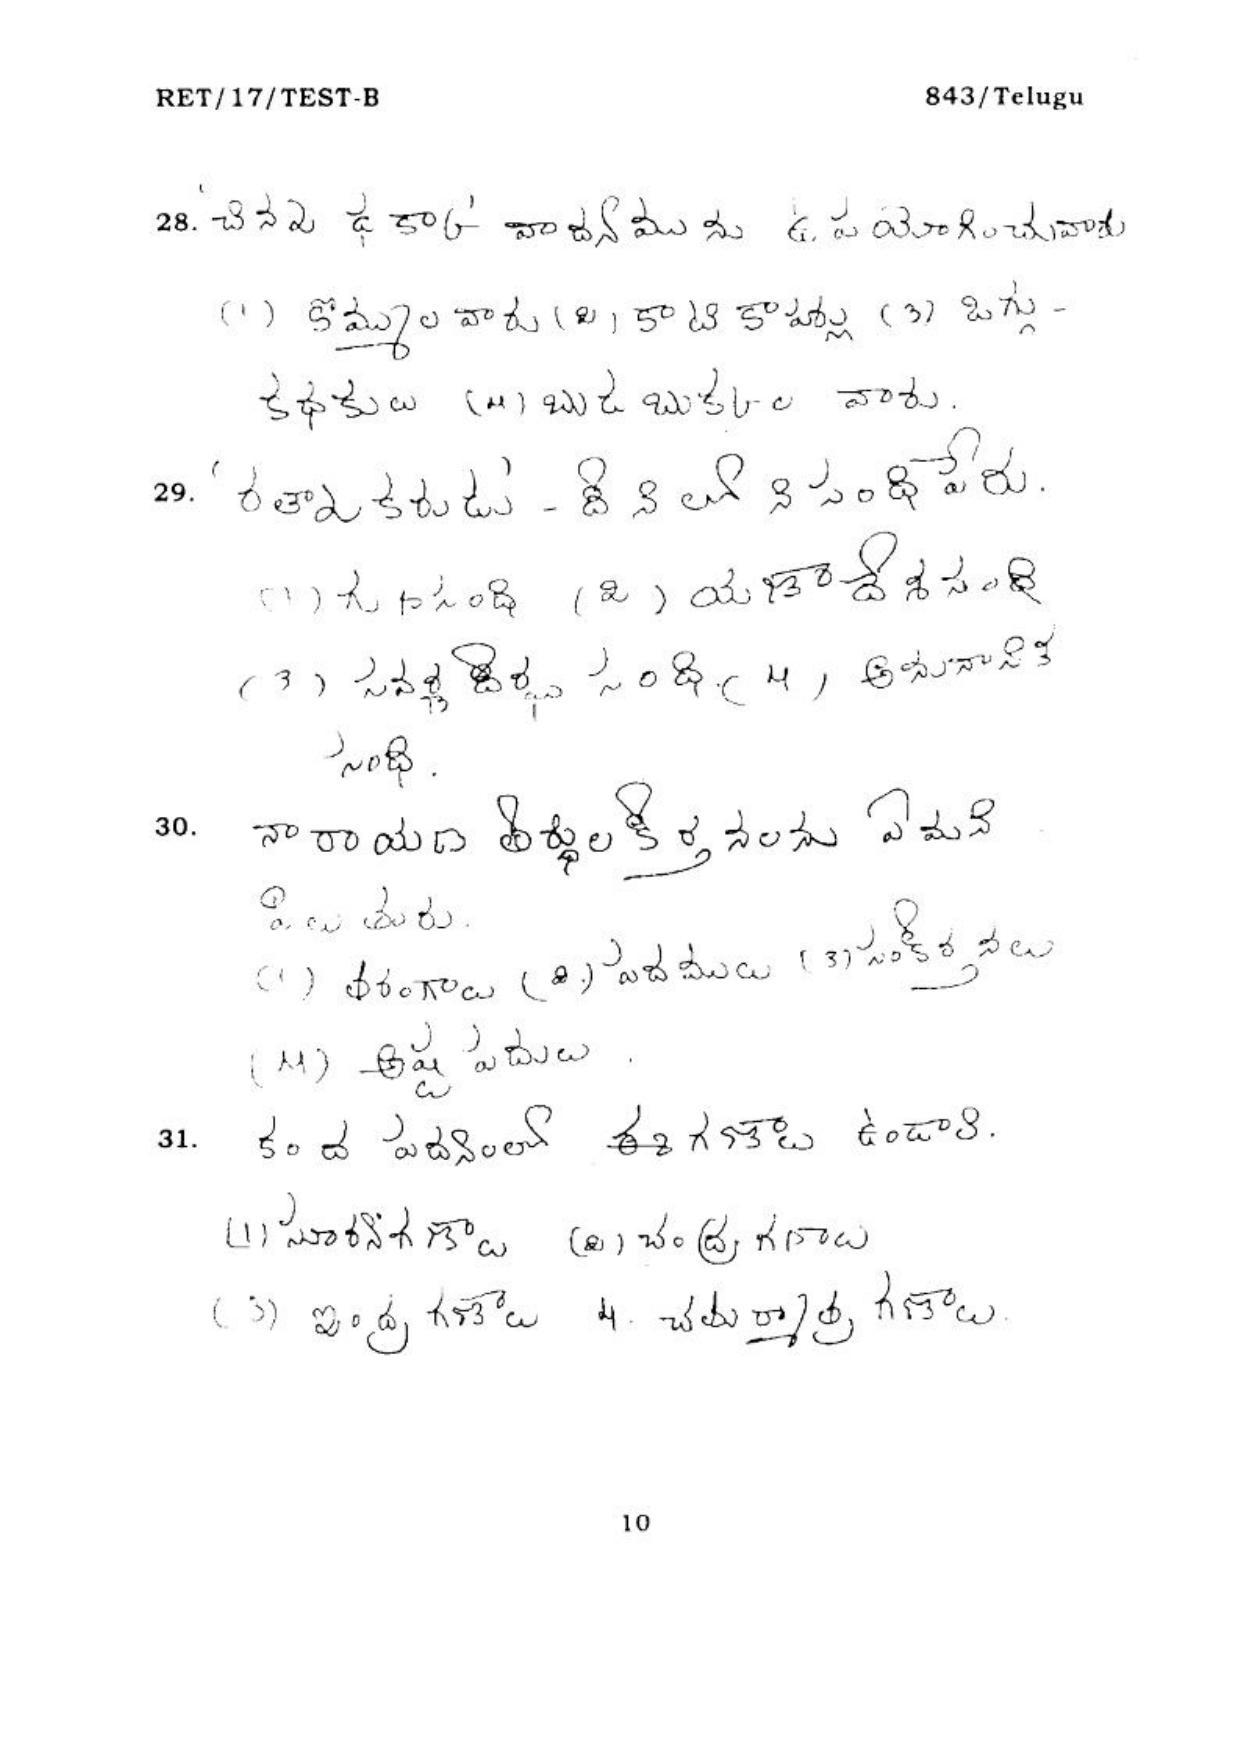 RET/17/TEST-B 843/Telugu
28. 'చిన్న ఢక్కా' వాద్యమును ఉపయోగించువారు
(1) కొమ్ములవారు (2) కాటికాపర్లు (3) ఒగ్గు-
కథకులు (4) బుడబుక్కల వారు.
29. 'రత్నాకరుడు' - దీనిలోని సంధి పేరు.
(1) గుణసంధి (2) యణాదేశసంధి
(3) సవర్ణదీర్ఘ సంధి. (4) అనునాసిక
సంధి.
30. నారాయణ తీర్థుల కీర్తనలను ఏమని
పిలుతురు.
(1) తరంగాలు (2) పదములు (3) సంకీర్తనలు
(4) అష్టపదులు.
31. కంద పద్యంలో ఈ గణాలు ఉండాలి.
(1) సూర్యగణాలు (2) చంద్రగణాలు
(3) ఇంద్ర గణాలు 4. చతుర్మాత్ర గణాలు.
10